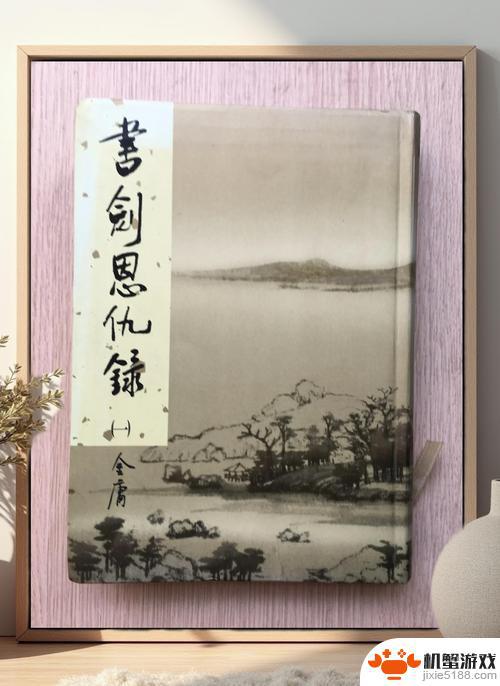 書劍恩仇錄
(一)
金庸
机蟹游戏
jixie5188.com